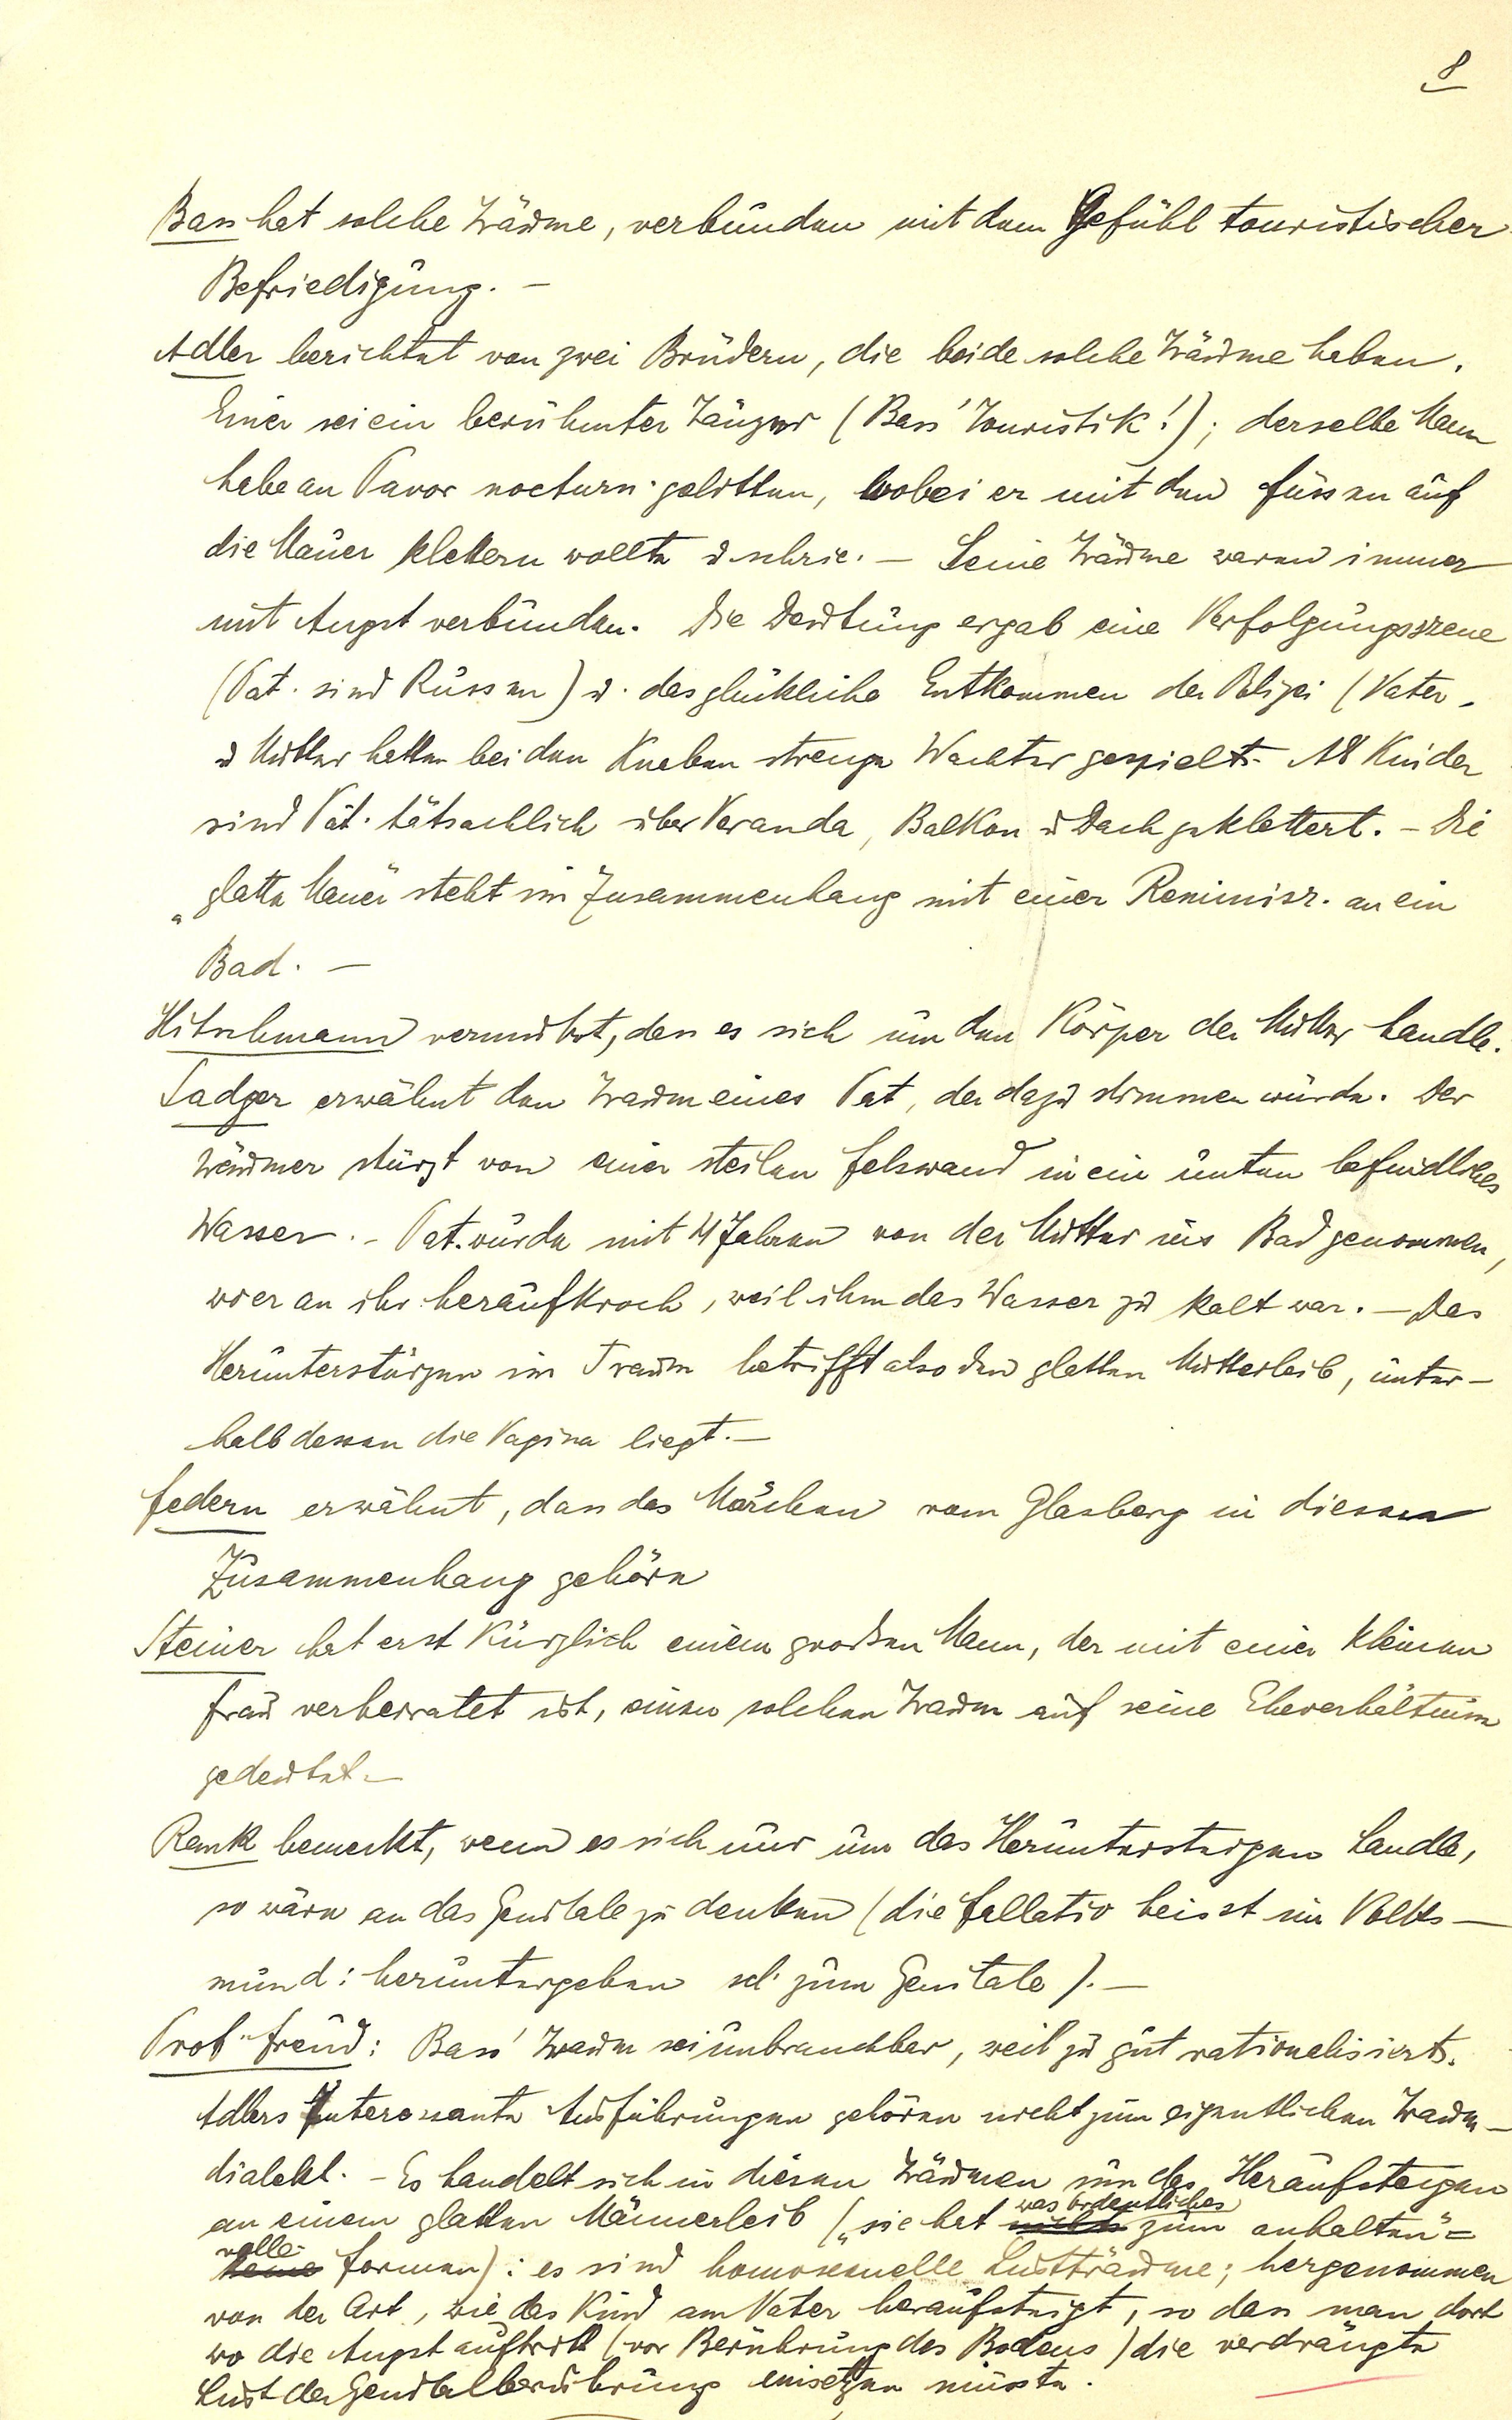 8
Bass hat solche Träume, verbunden mit dem Gefühl touristischer
Befriedigung. —
Adler berichtet von zwei Brüdern, die beide solche Träume haben.
Einer sei ein berühmter Tänzer (Bass' Touristik!); derselbe Mann
habe an Pavor nocturn. gelitten, wobei er mit den Füssen auf
die Mauer klettern wollte u schrie. — Seine Träume waren immer
mit Angst verbunden. Die Deutung ergab eine Verfolgungsszene
(Pat. sind Russen) u. das glückliche Entkommen der Polizei (Vater
u Mutter hatten bei den Knaben strenge Wächter gespielt. Als Kinder
sind Pat. tatsächlich über Veranda, Balkon u Dach geklettert. – Die
„glatte Mauer" steht im Zusammenhang mit einer Reminisz. an ein
Bad. —
Hitschmann vermutet, dass es sich um den Körper der Mutter handle.
Sadger erwähnt den Traum eines Pat, der dazu stimmen würde. Der
Träumer stürzt von einer steilen Felswand in ein unten befindliches
Wasser. – Pat. wurde mit 4 Jahren von der Mutter ins Bad genommen,
wo er an ihr heraufkroch, weil ihm das Wasser zu kalt war. — Das
Herunterstürzen im Traum betrifft also den glatten Mutterleib, unter-
halb dessen die Vagina liegt. —
Federn erwähnt, dass das Märchen vom Glasberg in diesen
Zusammenhang gehöre
Steiner hat erst kürzlich einem großen Mann, der mit einer kleinen
Frau verheiratet ist, einen solchen Traum auf seine Eheverhältnisse
gedeutet. —
Rank bemerkt, wenn es sich nur um das Heruntersteigen handle,
so wäre an das Genitale zu denken (die Fellatio heisst im Volks-
mund: heruntergehen scl. zum Genitale). —
Prof. Freud: Bass' Traum sei unbrauchbar, weil zu gut rationalisiert.
Adlers Interessante Ausführungen gehören nicht zum eigentlichen Traum-
dialekt. – Es handelt sich in diesen Träumen um das Heraufsteigen
an einem glatten Männerleib („sie hat was ordentliches zum anhalten" =
volle Formen): es sind homosexuelle Lustträume; hergenommen
von der Art, wie das Kind am Vater heraufsteigt, so dass man dort
wo die Angst auftritt (vor Berührung des Bodens) die verdrängte
Lust der Genitalberührung einsetzen müsste.